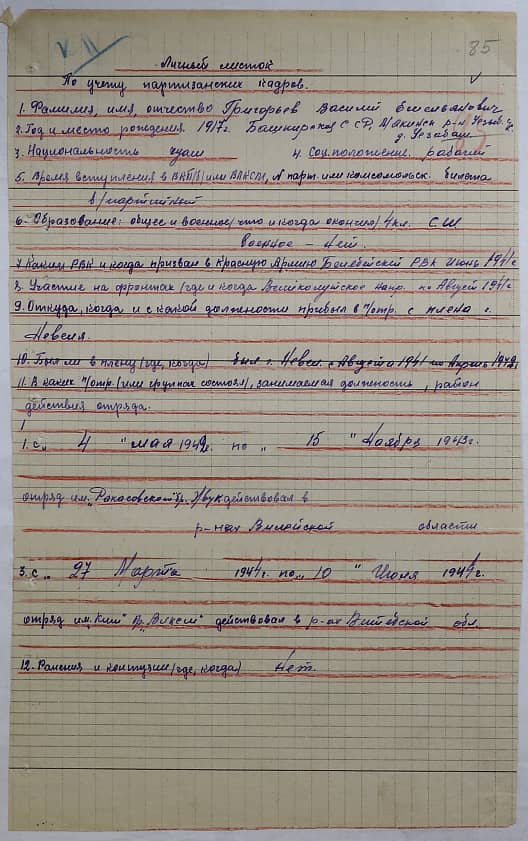 85
Личный листок
По учету партизанских кадров.
1. Фамилия, имя, отчество Григорьев Василий
2. Год и место рождения. 1917г. Башкирская ССР, р-н
д. Уезабаш
3. Национальность чуваш 4. Соц. положение. рабочий
5. Время вступления в ВКП/б/ или ВЛКСМ, № парт. или комсомольск. билета
б/партийный
6. Образование: общее и военное/что и когда окончил/ 4кл. СШ
Военное – нет.
7. Каким РВК и когда призван в Красную Армию Белебейский РВК Июнь 1941г.
8. Участие на фронтах /где и когда Великолукское напр. по Август 1941г
9. Откуда, когда и с какой должности прибыл в п/отр. с плена г.
Невеля.
10. Был ли в плену (где, когда) был г. Невель с Августа 1941 по Апрель 1942г
11. В каких п/отр. (или группах состоял), занимаемая должность, район
действия отряда.
1. с „ 4 " мая 1942г. по „ 15 " Ноября 1943г.
отряд им. "Рокасовского" бр. действовал в
р-нах Вилейской области
3. с „ 27 Марта 1944г. по „ 10 " Июня 1944г.
отряд им. Ким" действовал в р-ах Витебской обл.
12. Ранения и контузии (где, когда) Нет.